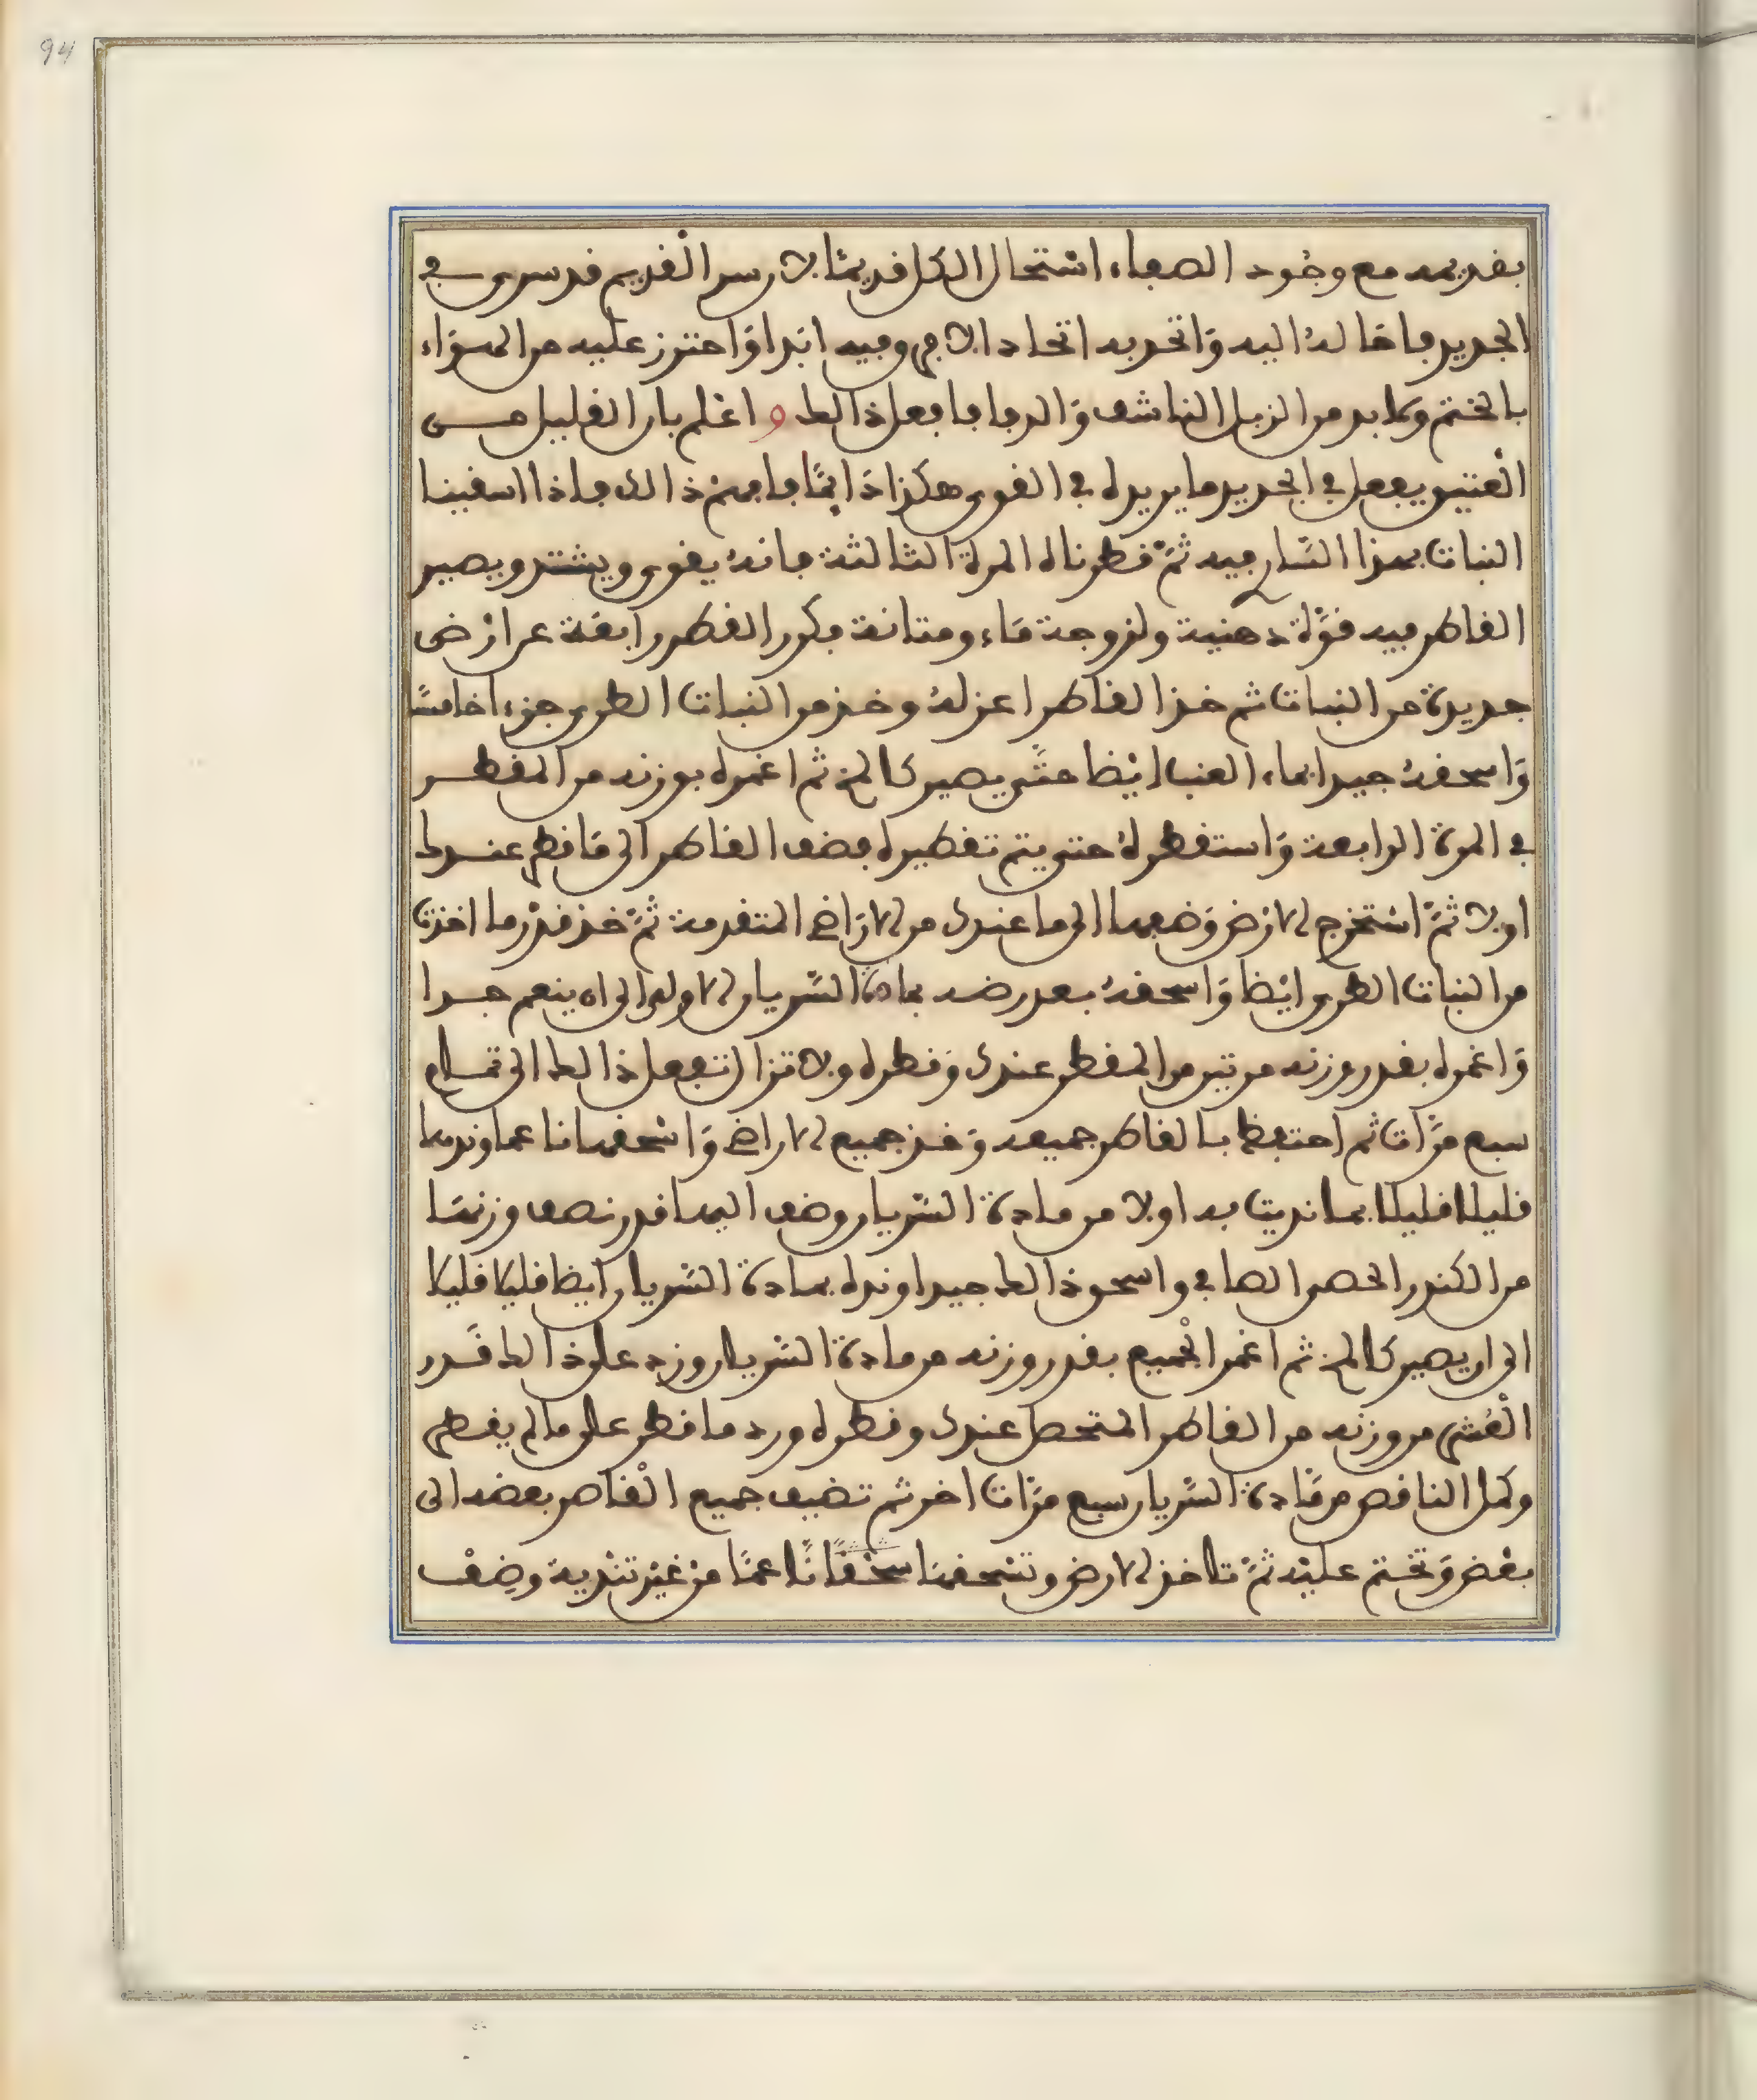 94
بقديمه مع وجود الصفاء استحال الكل قديما لان سر القديم قد سرى في
الجديد فاحاله اليه واتحد به اتحادا لا فروفيه ابدا واحترز عليه من الهواء
بالختم ولا بد من الزبل الناشف والدفا فافعل ذالك و اعلم بان القليل مـــن
العتيق يفعل في الجديد ما يريده في القوى هكذا دائما فافهم ذالك فاذا اسقينا
النبات بهذا السار فيه ثم قطرناه المرة الثالثة فانه يقوى ويشتد ويصير
القاطر فيه قوة دهنية ولزوجة ماء ومتانة فكرر القطر رابعة عن ارض
جديدة من النبات ثم خذ القاطر اعزله وخذ من النبات الطرى جزءا خامسا
واسحقه جيدا بماء العنب ايضا حتى يصير كالمخ ثم اغمره بوزنه من المقطـر
في المرة الرابعة واستقطره حتى يتم تقطيره فضف القاطر الى ما قطر عنـدك
اولا ثم استخرج الارض وضعها الى ما عندك من الاراضى المتقدمة ثم خذ قدر ما اخذت
من النبات الطرى ايضا واسحقه بعد رضه بمادة السريان الاولى الى ان ينعم جـدا
واغمره بقدر وزنه مرتين من المقطر عندك وقطره ولا تزال تفعل ذالك الى تمـام
سبع مرات ثم احتفظ بالقاطر جميعه وخذ جميع الاراضى واسحقها ناعما وندها
قليلا قليلا بما نديت به اولا من مادة السريان وضف اليها قدر نصف وزنها
من الكندر الحصى الصافى واسحق ذالك جيدا ونده بمادة السريان ايضا قليلا قليلا
الى ان يصير كالمخ ثم اغمر الجميع بقدر وزنه من مادة السريان وزد على ذالك قـدر
العشر من وزنه من القاطر المتحصل عندك وقطره ورد ما قطر على ما لم يقطر
وكمل الناقص من مادة السريان سبع مرات اخر ثم تضيف جميع القاطر بعضه الى
بعض وتختم عليه ثم تاخذ الارض وتسحقها سحقا ناعما من غير تندية وضف